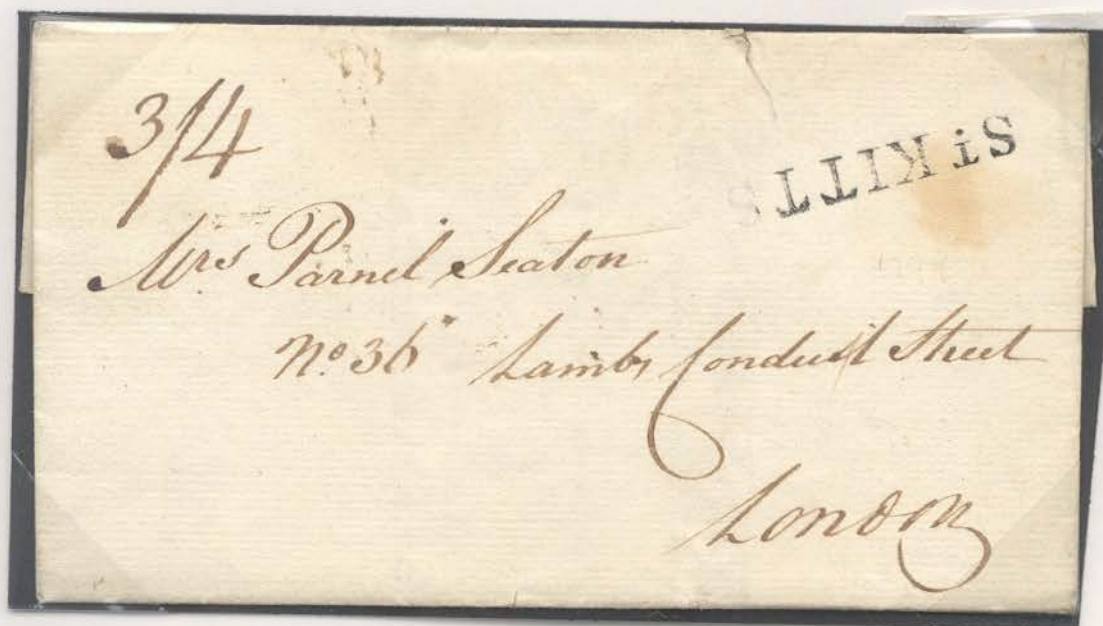 3/4
St KITTS
Mrs Parnel Seaton
No. 36 Lambs Conduit Street
London